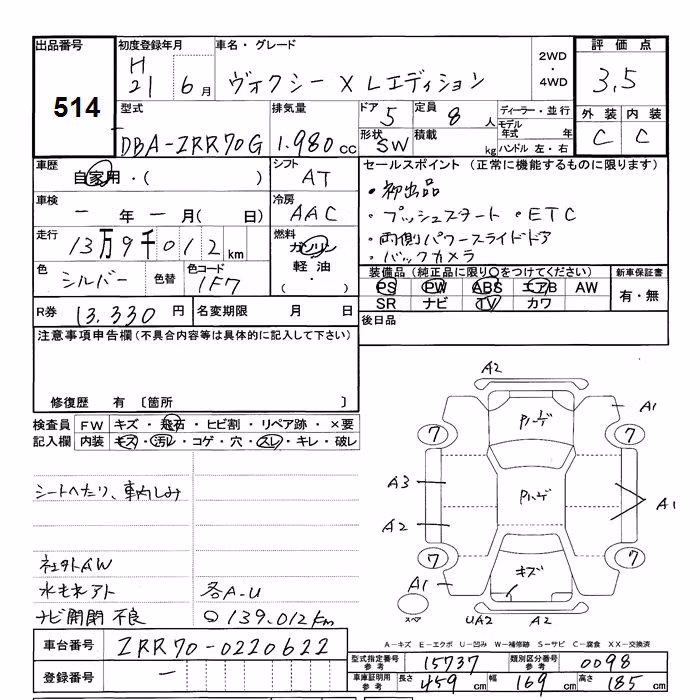 出品番号 初度登録年月 車名・グレード 2WD ・ 4WD 評価点
514 H 21 6月 ヴォクシー X Lエディション 3.5
型式 排気量 ドア 5 定員 8人 ディーラー・並行 外装 内装
DBA-ZRR70G 1.980cc 形状 SW 積載 kg モデル年式 年 ハンドル 左・右 C C
車歴 自家用・( ) シフト AT セールスポイント (正常に機能するものに限ります)
車検 一年一月( 日) 冷房 AAC ・初出品
・プッシュスタート ・ETC
走行 13万9千012km 燃料 ガソリン 軽油 ・( ) ・両側パワースライドドア
・バックカメラ
色 シルバー 色替 色コード 1F7 装備品 (純正品に限り○をつけてください) 新車保証書
PS PW ABS エアB AW 有・無
SR ナビ TV カワ
R券 13.330円 名変期限 月 日 後日品
注意事項申告欄 (不具合内容等は具体的に記入して下さい)
修復歴 有 〔箇所 〕
検査員 FW キズ・飛石・ヒビ割・リペア跡・×要
記入欄 内装 キズ・汚れ・コゲ・穴・スレ・キレ・破レ
シートへたり、車内しみ
社外AW
水もれアト 各A-U
ナビ開閉 不良 139,012km
A2
A1
7 パーデ 7
A3 パーデ
A2 A1
7 キズ 7
A1
スペア UA2 A2
A-キズ E-エクボ U-凹み W-補修跡 S-サビ C-腐食 XX-交換済
車台番号 ZRR70-0220622
型式指定番号 参考 15737 類別区分番号 参考 0098
登録番号 一 車庫証明用 参考 長さ 459cm 幅 169cm 高さ 185cm